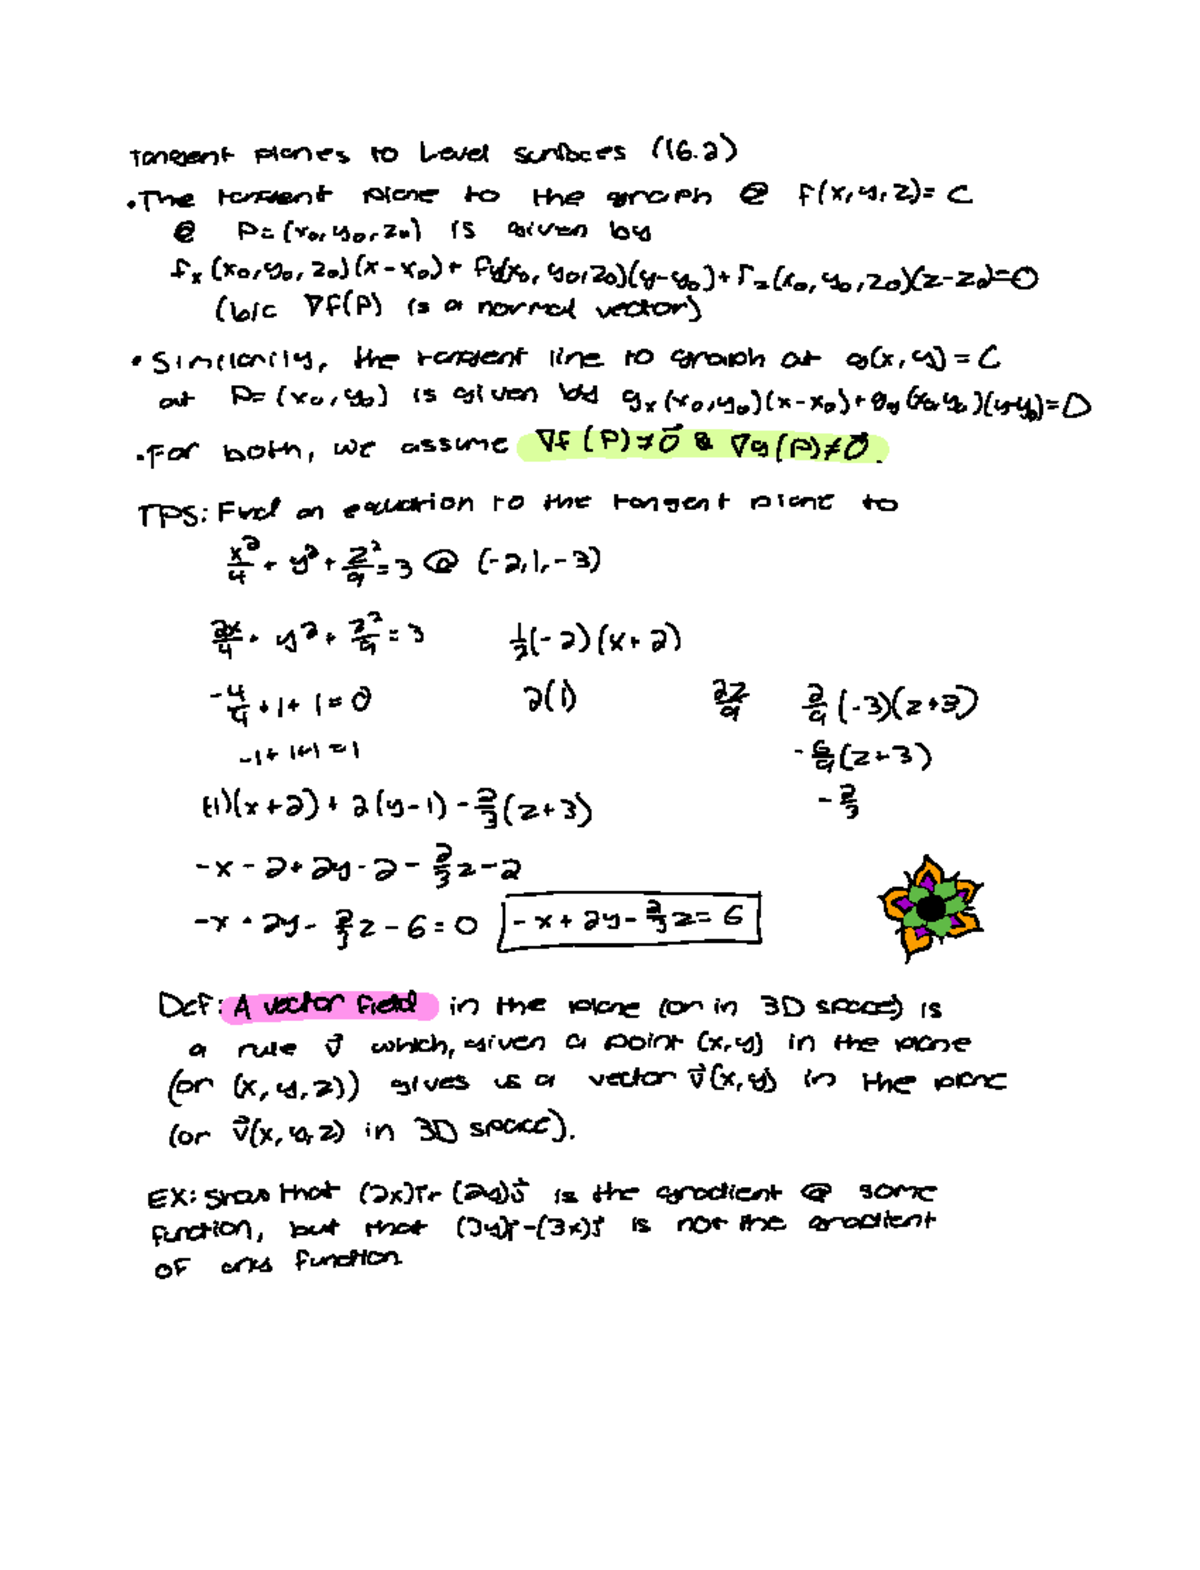 Tangent planes to Level surfaces (16.2)
• The tangent plane to the graph @ f(x, y, z) = C
@ P = (x₀, y₀, z₀) is given by
fₓ(x₀, y₀, z₀)(x - x₀) + f_y(x₀, y₀, z₀)(y - y₀) + f_z(x₀, y₀, z₀)(z - z₀) = 0
(b/c ∇f(P) is a normal vector)
• Similarily, the tangent line to graph at g(x, y) = C
at P = (x₀, y₀) is given by gₓ(x₀, y₀)(x - x₀) + g_y(x₀, y₀)(y - y₀) = 0
• For both, we assume ∇f(P) ≠ 0⃗ & ∇g(P) ≠ 0⃗.
TPS: Find an equation to the tangent plane to
x²/4 + y² + z²/9 = 3 @ (-2, 1, -3)
2x/4 + y² + z²/9 = 3 1/2(-2)(x + 2)
-4/4 + 1 + 1 = 0 2(1) 2z/9 2/9(-3)(z + 3)
-1 + 1 + 1 = 1 -6/9(z + 3)
(-1)(x + 2) + 2(y - 1) - 2/3(z + 3) -2/3
-x - 2 + 2y - 2 - 2/3z - 2
-x + 2y - 2/3z - 6 = 0 -x + 2y - 2/3z = 6
Def: A vector field in the plane (or in 3D space) is
a rule v⃗ which, given a point (x, y) in the plane
(or (x, y, z)) gives us a vector v⃗(x, y) in the plane
(or v⃗(x, y, z) in 3D space).
EX: Show that (2x)i⃗ + (2y)j⃗ is the gradient @ some
function, but that (3y)i⃗ - (3x)j⃗ is not the gradient
of any function